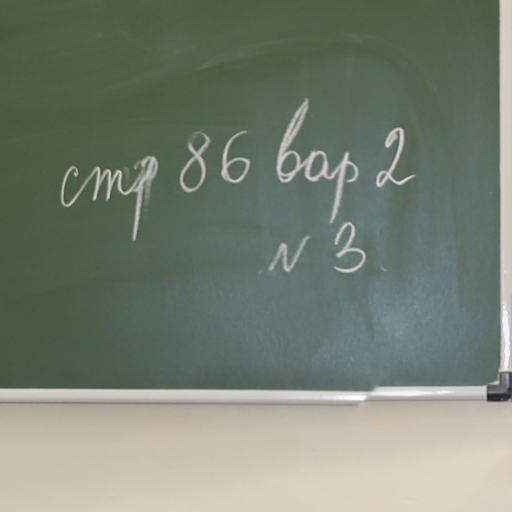 стр 86 вар 2
N 3.